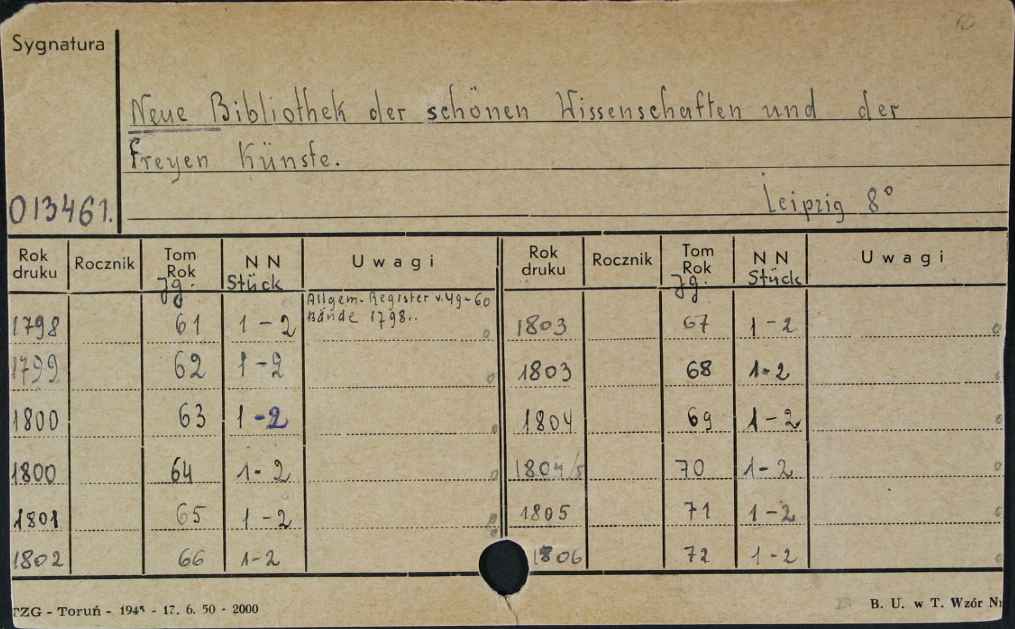 Sygnatura
Neue Bibliothek der schönen Wissenschaften und der
Freyen Künste.
013461.
Leipzig 8°
Rok druku Rocznik Tom Rok Jg. N N Stück Uwagi Rok druku Rocznik Tom Rok Jg. N N Stück Uwagi
Allgem. Register v. 49-60
Bände 1798..
1798 61 1-2 1803 67 1-2
1799 62 1-2 1803 68 1-2
1800 63 1-2 1804 69 1-2
1800 64 1-2 1804/5 70 1-2
1801 65 1-2 1805 71 1-2
1802 66 1-2 1806 72 1-2
TZG - Toruń - 1945 - 17. 6. 50 - 2000
B. U. w T. Wzór Nr